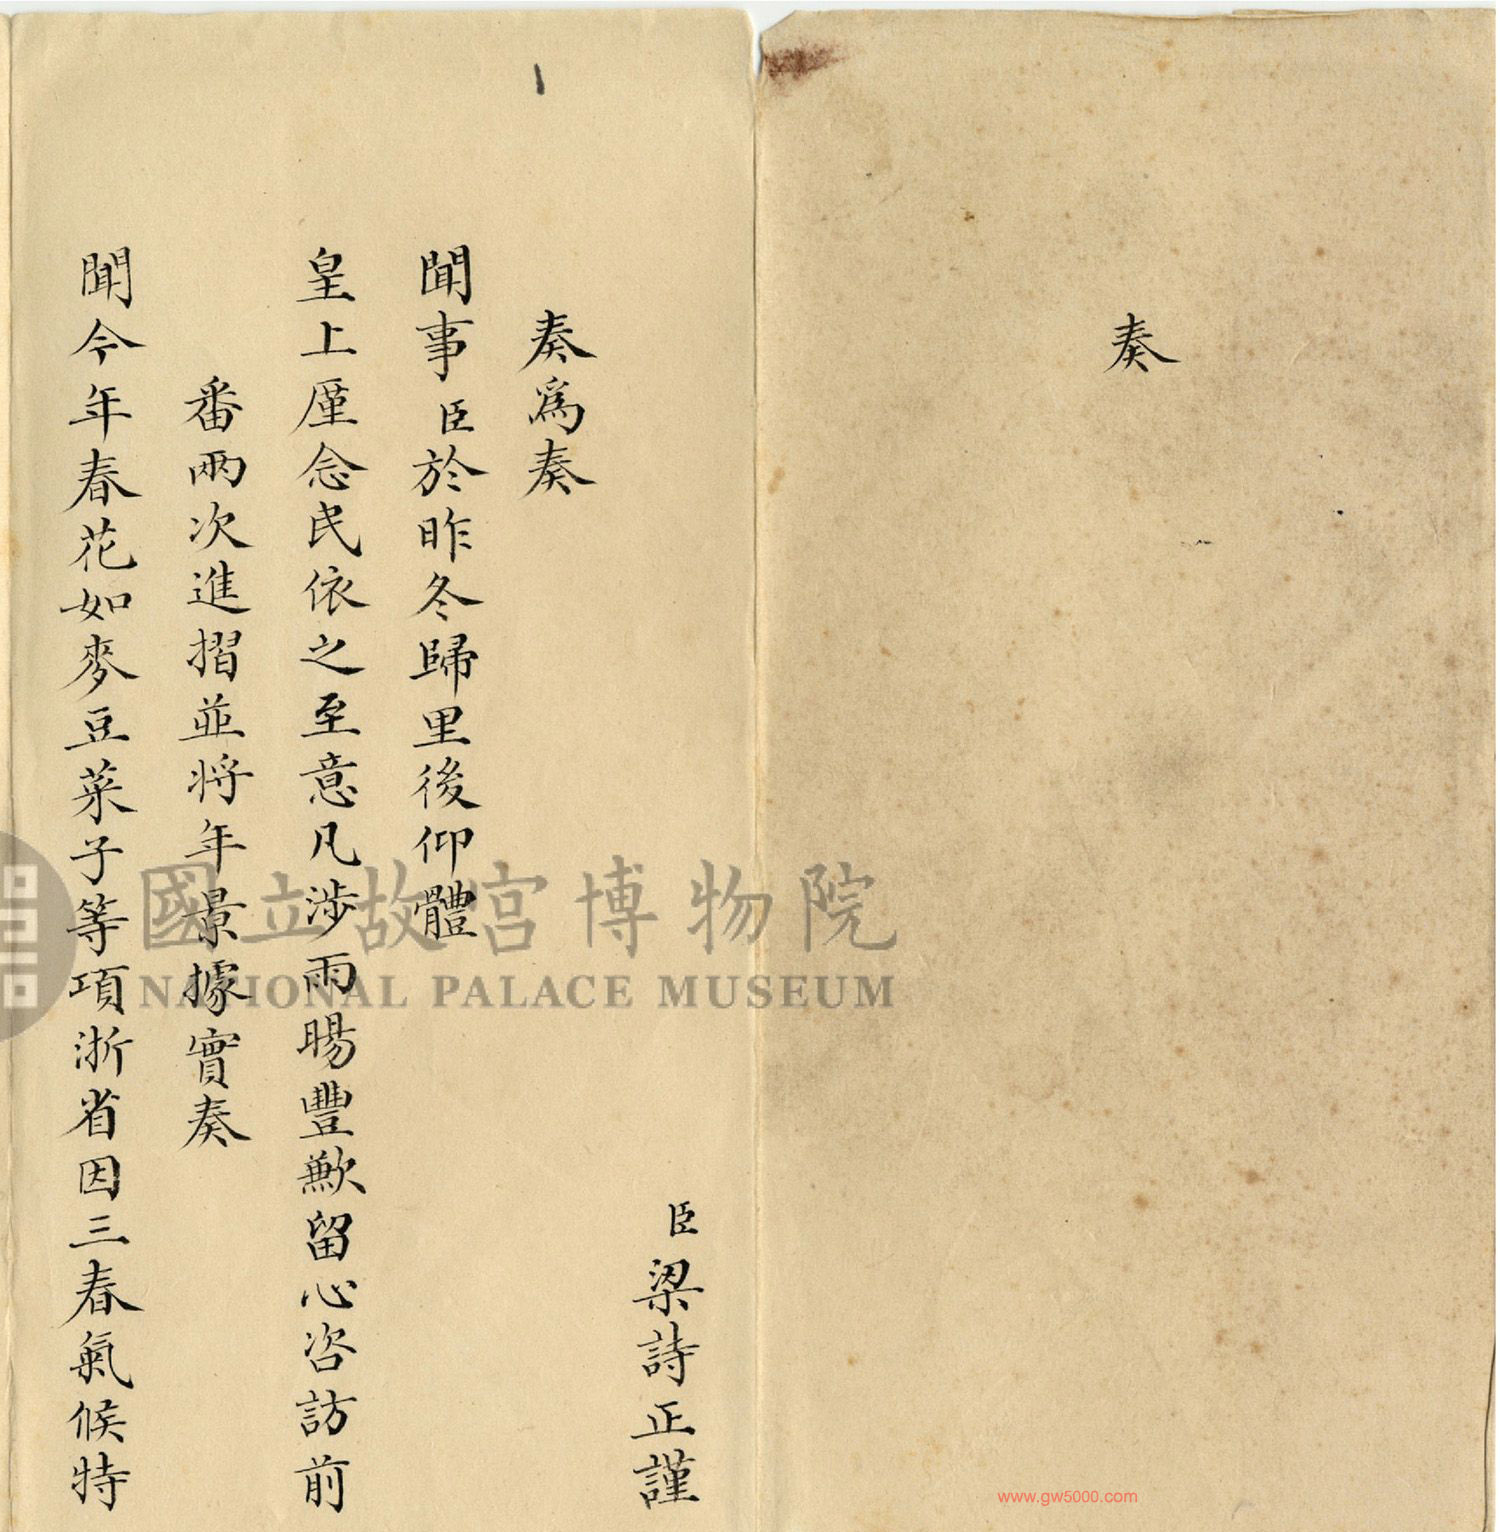 奏
臣梁詩正謹
奏爲奏
聞事臣於昨冬歸里後仰體
皇上廑念民依之至意凡涉雨暘豐歉留心咨訪前
番兩次進摺並将年景據實奏
聞今年春花如麥豆菜子等項浙省因三春氣候特
國立故宮博物院
NATIONAL PALACE MUSEUM
www.gw5000.com